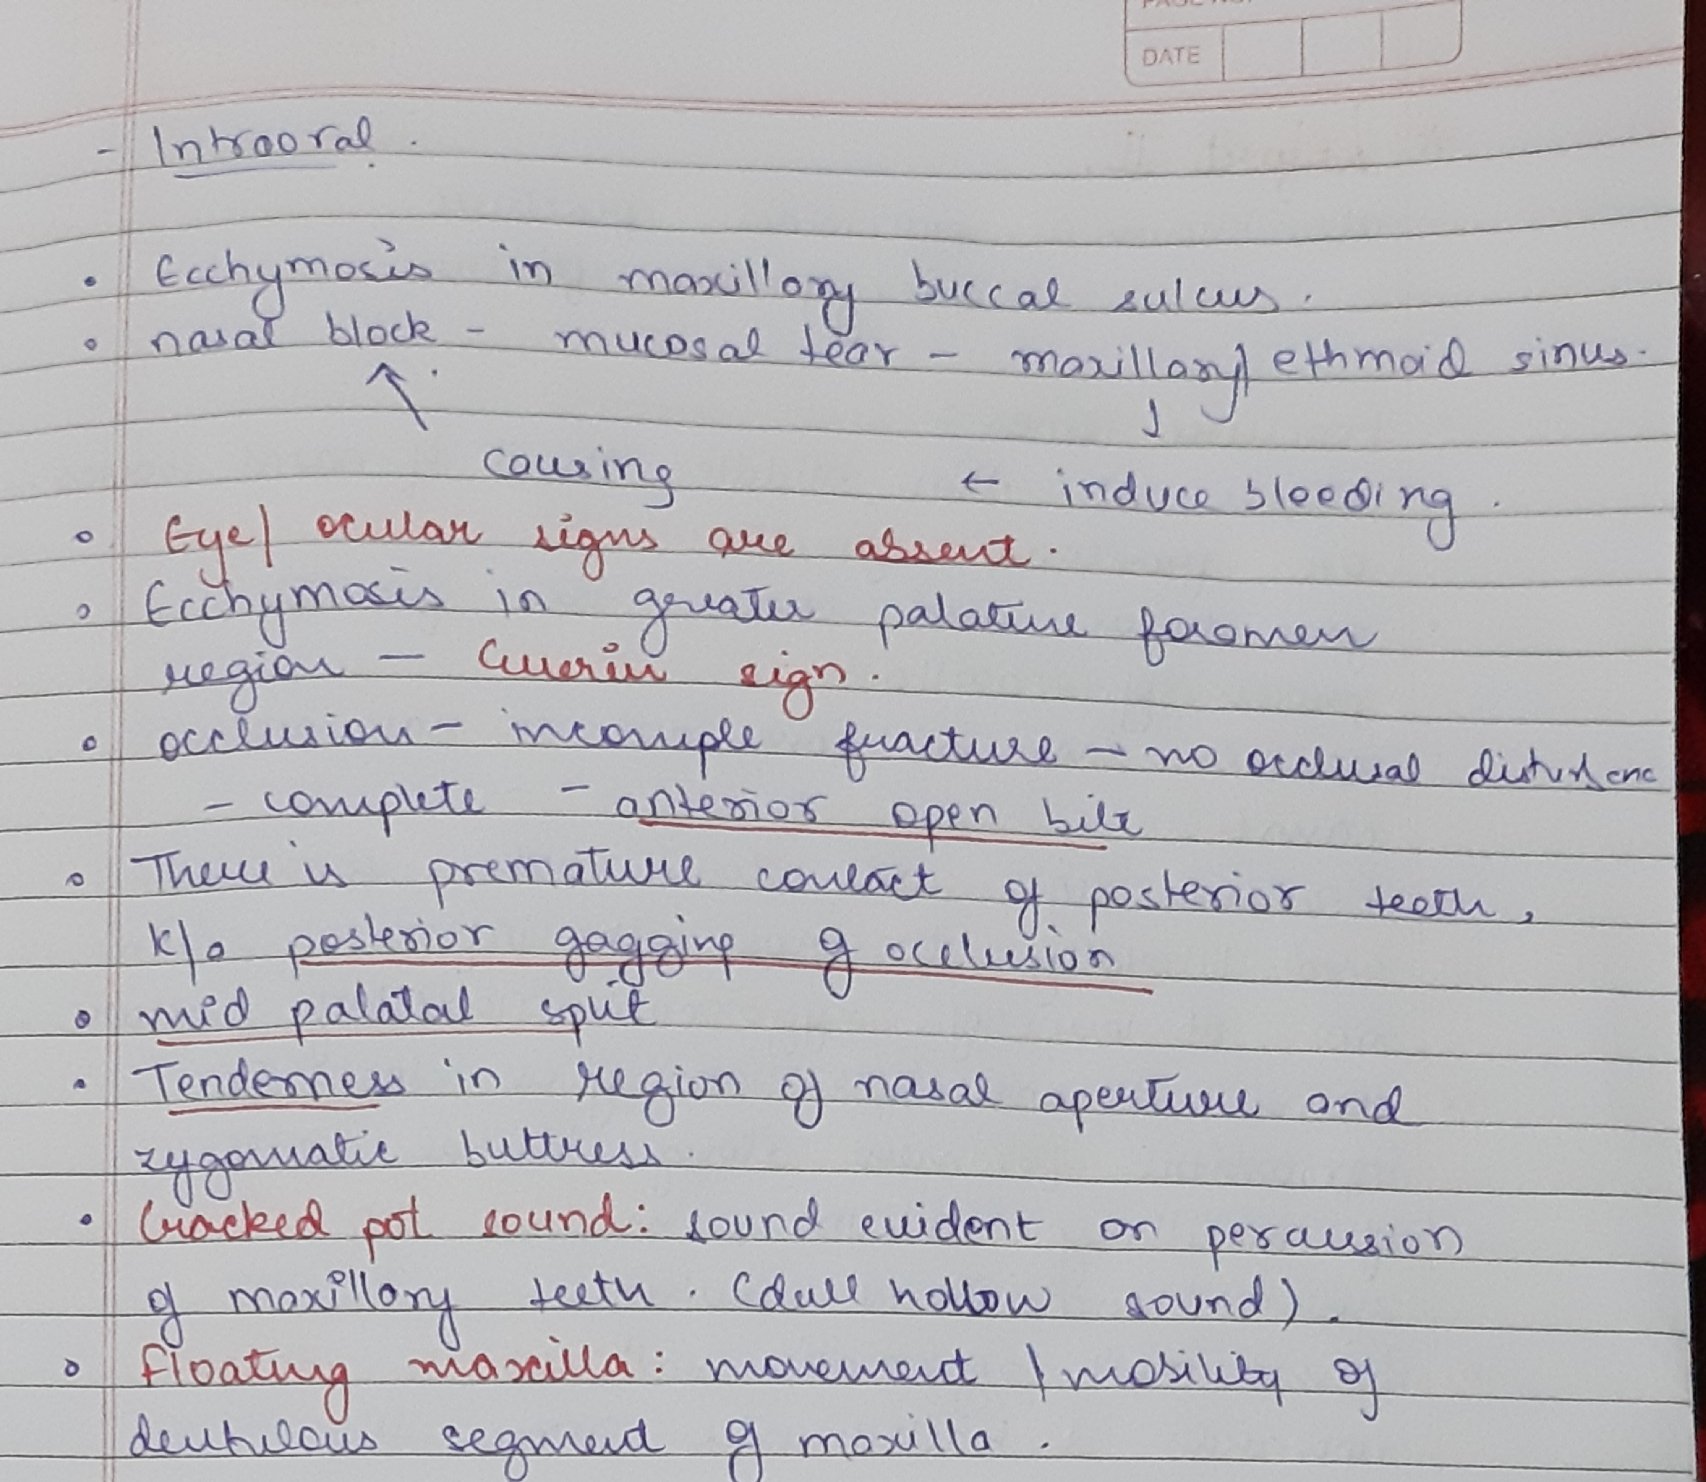 DATE
- Intraoral.
• Ecchymosis in maxillary buccal sulcus.
• nasal block - mucosal tear - maxillary/ ethmoid sinus.
↓
causing ← induce bleeding.
• Eye/ ocular signs are absent.
• Ecchymosis in greater palatine foramen
region - Guerin sign.
• occlusion - incomple fracture - no occlusal disturbenc
- complete - anterior open bite
• There is premature contact of posterior teeth,
k/a posterior gagging of occlusion
• mid palatal split
• Tenderness in region of nasal aperture and
zygomatic buttress.
• Cracked pot sound: sound evident on percussion
of maxillary teeth. (dull hollow sound).
• Floating maxilla: movement / mobility of
dentulous segment of maxilla.